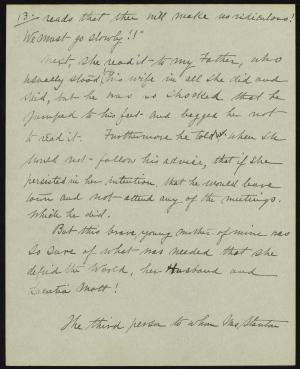 13-
reads that then will make us ridiculous!
We must go slowly!!"
Next, she read it - to my Father, who
usually stood by his wife in all she did and
said, but he was so shocked that he
jumped to his feet - and begged her not
to read it. Furthermore he told her when she
would not - follow his advice, that if she
persisted in her intention, that he would leave
town and not - attend any of the meetings.
Which he did.
But this brave, young mother of mine was
so sure of what was needed that she
defied the World, her Husband and
Lucretia Mott!
The third person to whom Mrs Stanton